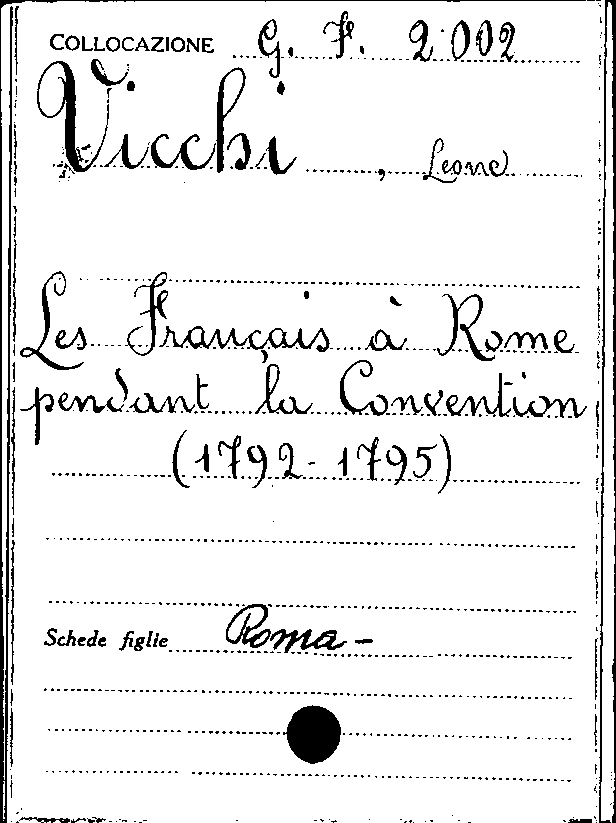 COLLOCAZIONE G. F. 2002
Vicchi, Leone
Les Français à Rome
pendant la Convention
(1792-1795)
Schede figlie Roma -